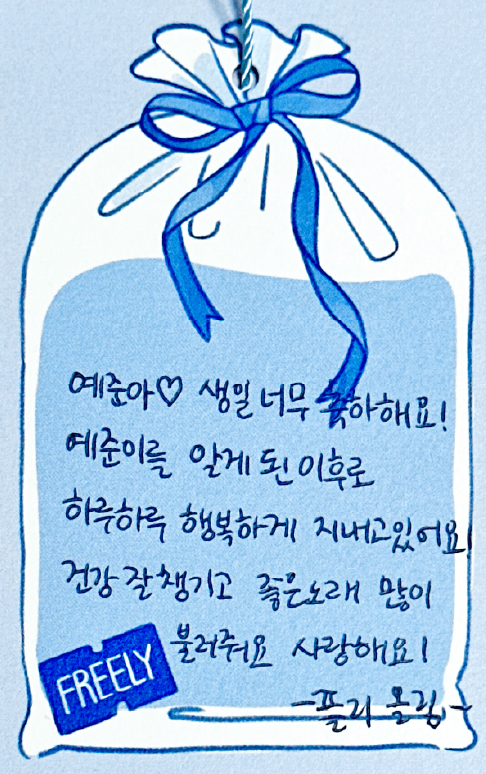 예준아♡ 생일 너무 축하해요!
예준이를 알게 된 이후로
하루하루 행복하게 지내고있어요!
건강 잘 챙기고 좋은노래 많이
불러줘요 사랑해요!
FREELY
-플리 올림-